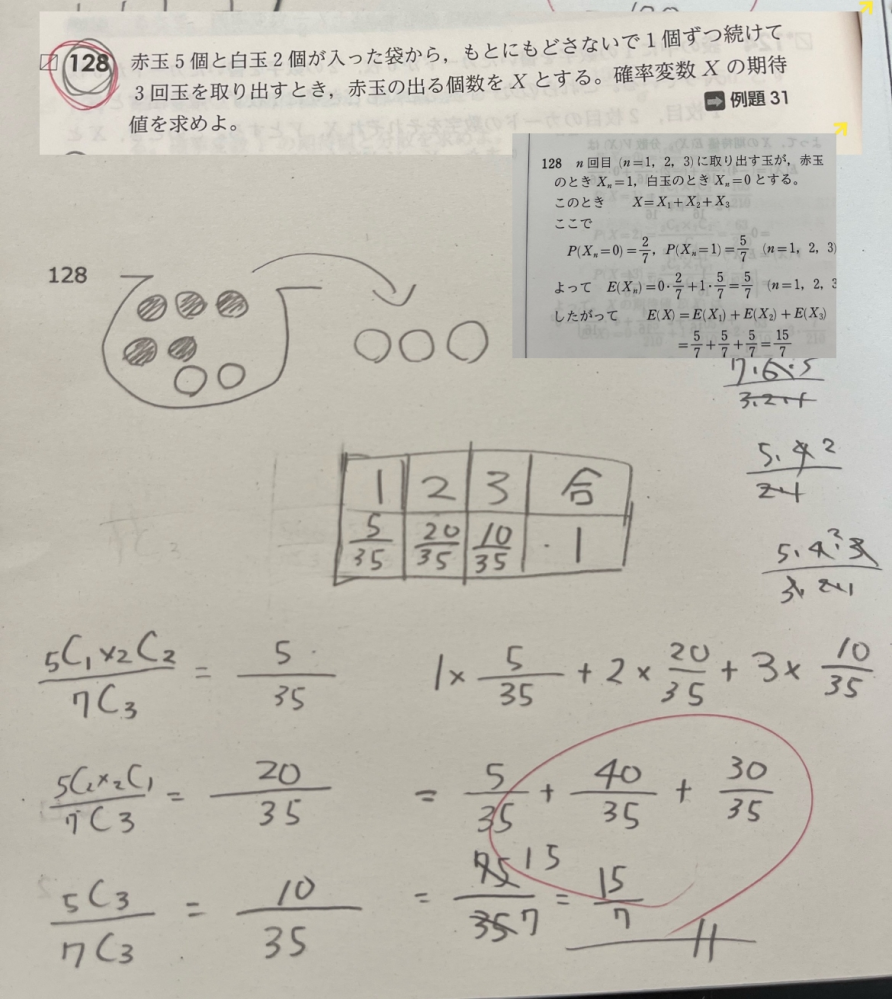 128 赤玉5個と白玉2個が入った袋から，もとにもどさないで1個ずつ続けて
3回玉を取り出すとき，赤玉の出る個数を X とする。確率変数 X の期待
値を求めよ。
➡ 例題 31
128 n 回目 (n=1, 2, 3) に取り出す玉が，赤玉
のとき Xₙ=1，白玉のとき Xₙ=0 とする。
このとき X=X₁+X₂+X₃
ここで
P(Xₙ=0)=2/7, P(Xₙ=1)=5/7 (n=1, 2, 3)
よって E(Xₙ)=0・2/7+1・5/7=5/7 (n=1, 2, 3
したがって E(X)=E(X₁)+E(X₂)+E(X₃)
=5/7+5/7+5/7=15/7
128
7・6・5/3・2・1
5・4 2/2・1
5・4 2・3/3・2・1
1 2 3 合
5/35 20/35 10/35 1
₅C₁×₂C₂/₇C₃ = 5/35
1×5/35+2×20/35+3×10/35
₅C₂×₂C₁/₇C₃ = 20/35
= 5/35+40/35+30/35
₅C₃/₇C₃ = 10/35
= 75 15/35 7 = 15/7